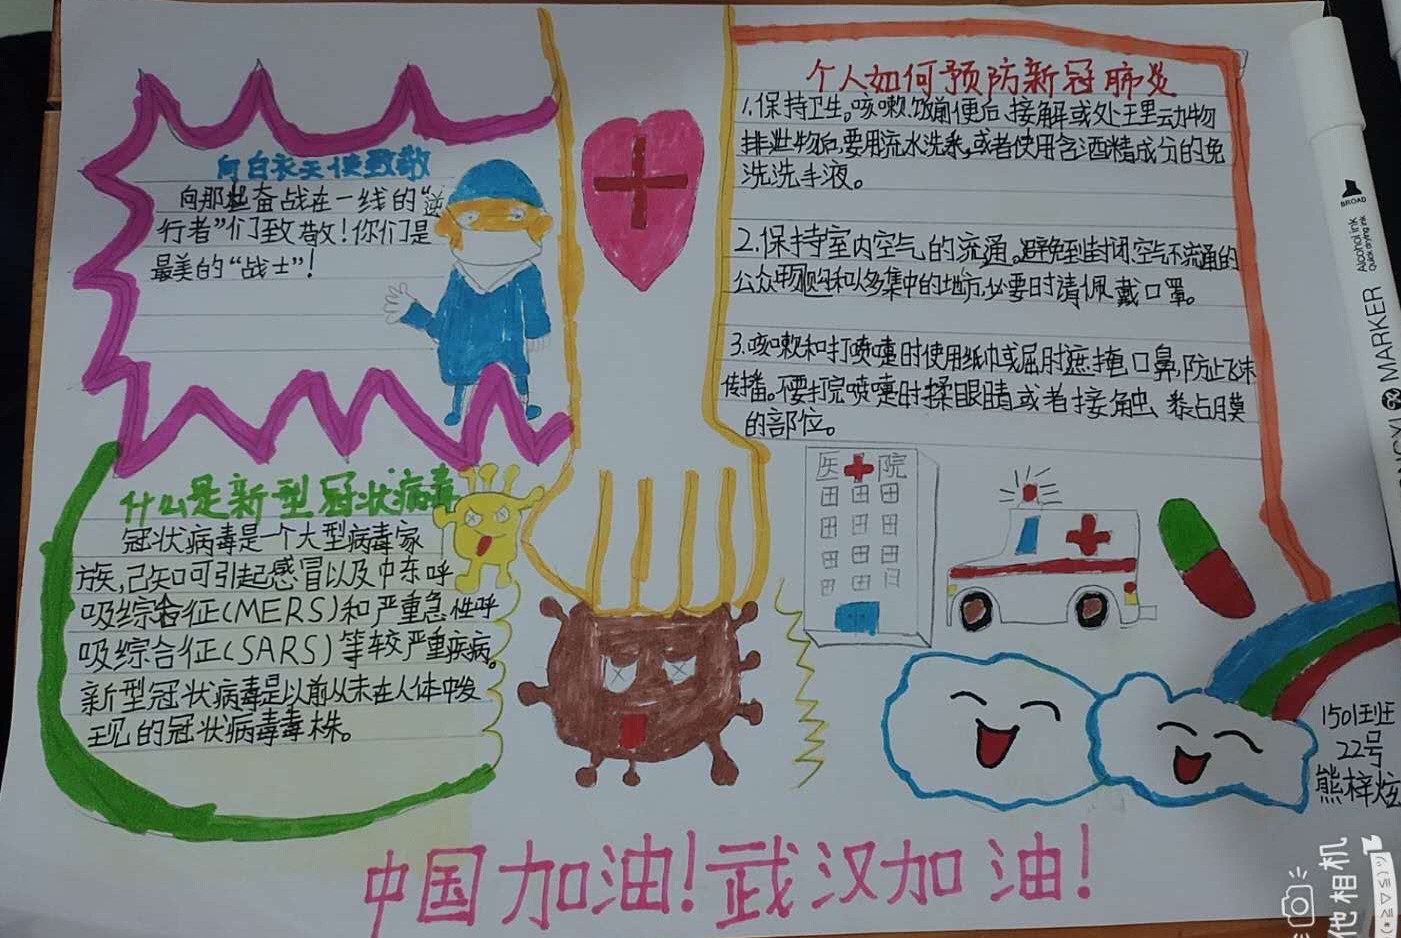 向白衣天使致敬
向那些奋战在一线的“逆
行者”们致敬！你们是
最美的“战士”！
什么是新型冠状病毒
冠状病毒是一个大型病毒家
族，己知可引起感冒以及中东呼
吸综合征(MERS)和严重急性呼
吸综合征(SARS)等较严重疾病。
新型冠状病毒是以前从未在人体中发
现的冠状病毒毒株。
个人如何预防新冠肺炎
1.保持卫生。咳嗽、饭前便后、接解或处王里动物
排泄物后，要用流水洗手，或者使用含酒精成分的免
洗洗手液。
2.保持室内空气的流通。避免到封闭、空气不流通的
公众场和人多集中的地方，必要时请佩戴口罩。
3.咳嗽和打喷嚏时使用纸巾或屈肘遮掩口鼻，防止飞沫
传播。不要打完喷嚏时揉眼睛或者接触黏膜
的部位。
医院
1501班
22号
熊梓炫
中国加油！武汉加油！
BROAD
Alcohol ink
MARKER
他相机